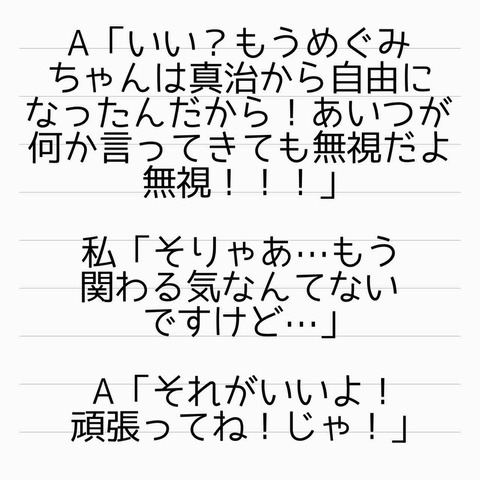 A「いい？もうめぐみ
ちゃんは真治から自由に
なったんだから！あいつが
何か言ってきても無視だよ
無視！！！」
私「そりゃあ…もう
関わる気なんてない
ですけど…」
A「それがいいよ！
頑張ってね！じゃ！」